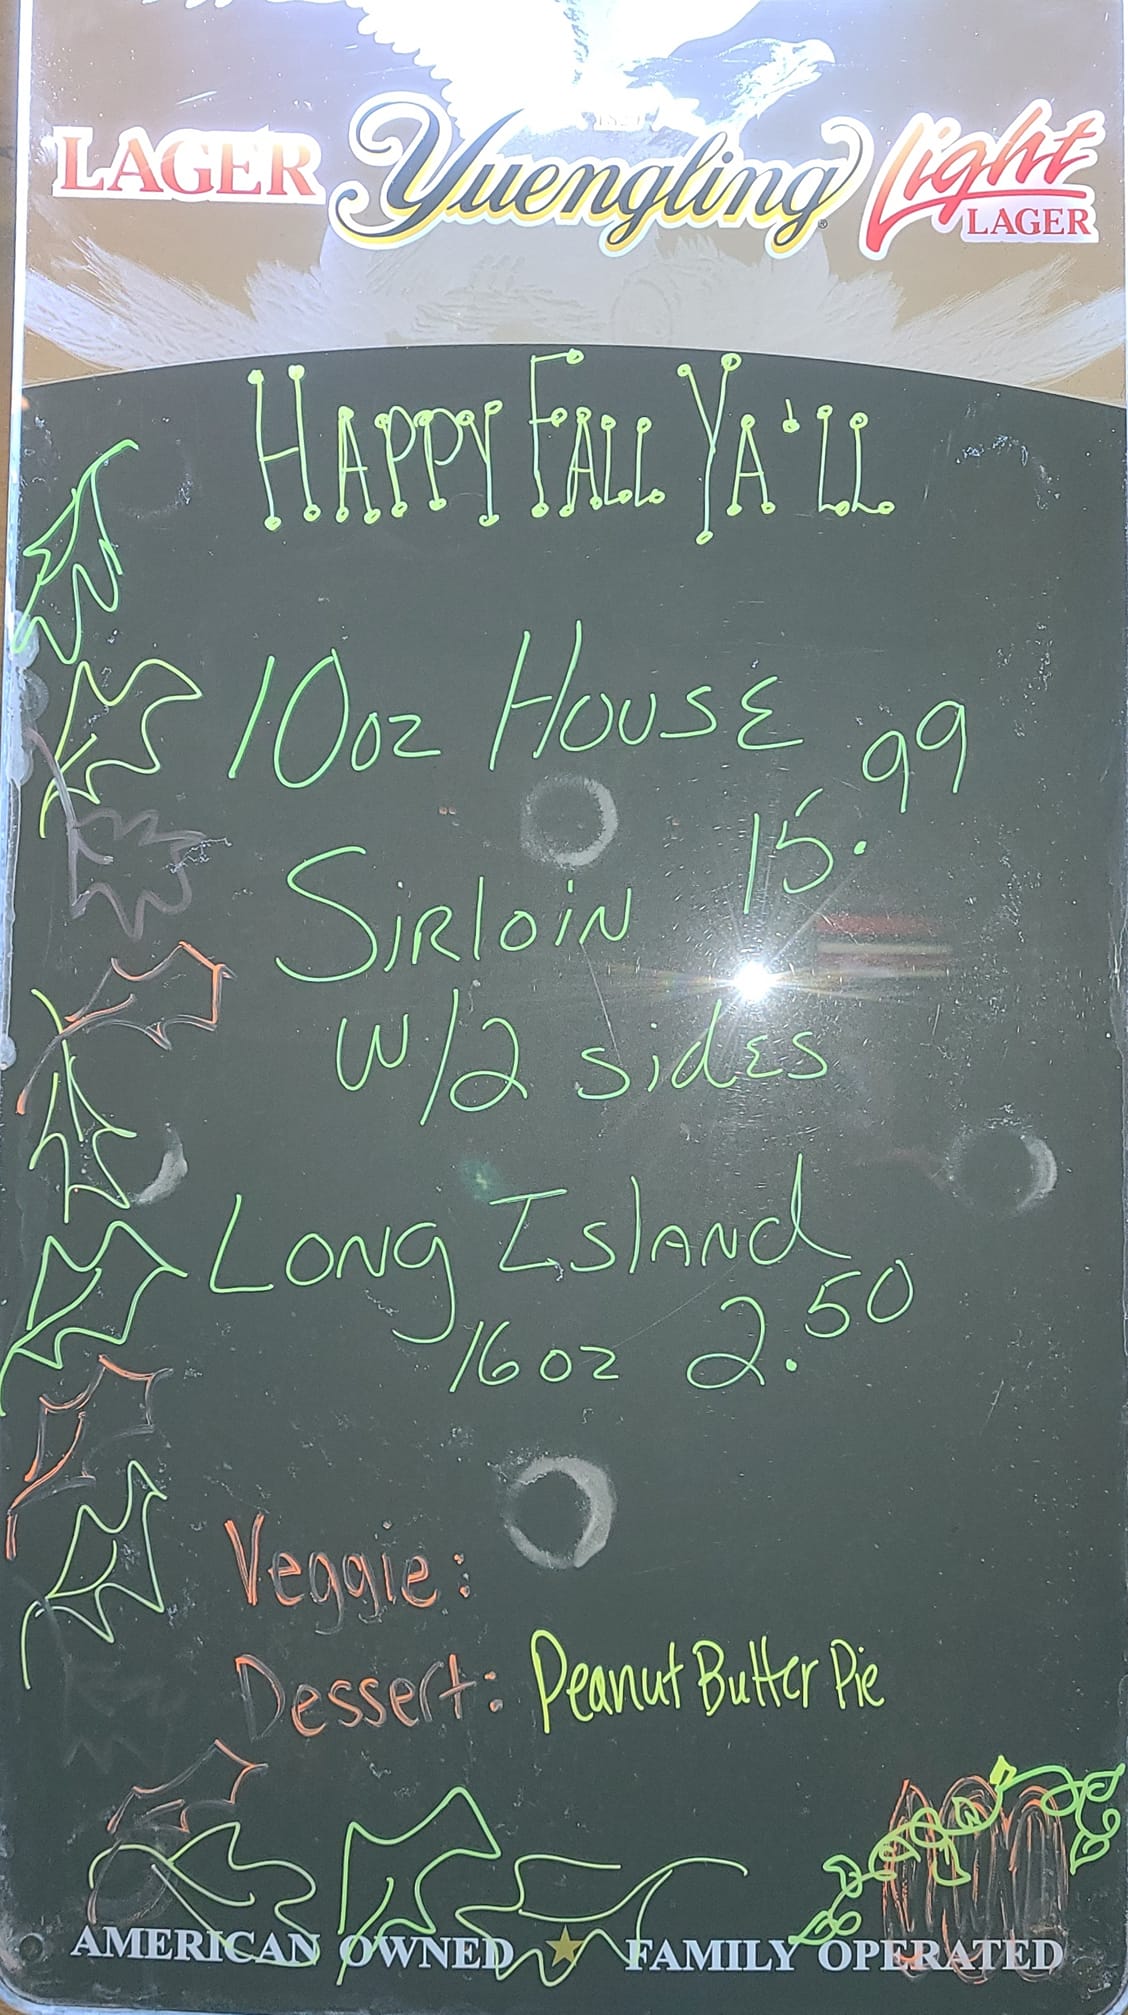 LAGER Yuengling Light LAGER
HAPPY FALL YA'LL
10oz HOUSE
SIRloiN 15.99
W/2 sidEs
LONg IslANd
16oz 2.50
Veggie:
Dessert: Peanut Butter Pie
AMERICAN OWNED ★ FAMILY OPERATED